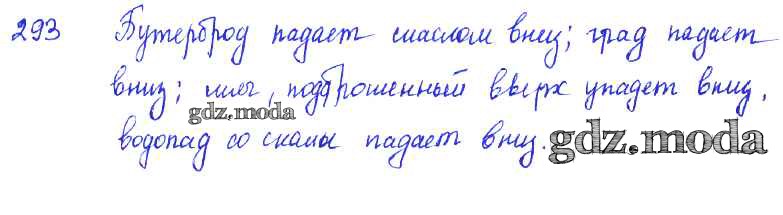 293 Бутерброд падает маслом вниз; град падает
вниз; мяч, подброшенный вверх упадет вниз,
gdz.moda
водопад со скалы падает вниз.
gdz.moda